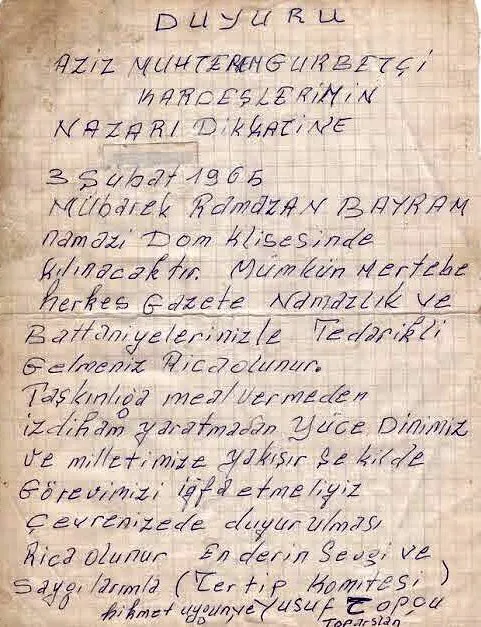 DUYURU
AZİZ MUHTEREM GURBETÇİ
KARDEŞLERİMİN
NAZARI DİKKATİNE
3 Şubat 1965
Mübarek Ramazan BAYRAM
namazi Dom Klisesinde
kılınacaktır. Mümkün Mertebe
herkes Gazete Namazlık ve
Battaniyelerinizle Tedarikli
Gelmeniz Rica olunur.
Taşkınlığa meal vermeden
izdiham yaratmadan Yüce Dinimiz
ve milletimize yakışır şekilde
Görevimizi ifa etmeliyiz
Çevrenizede duyurulması
Rica olunur En derin Sevgi ve
Saygılarımla (Tertip Komitesi)
hikmet uygun ve Yusuf Topçu
Toparslan